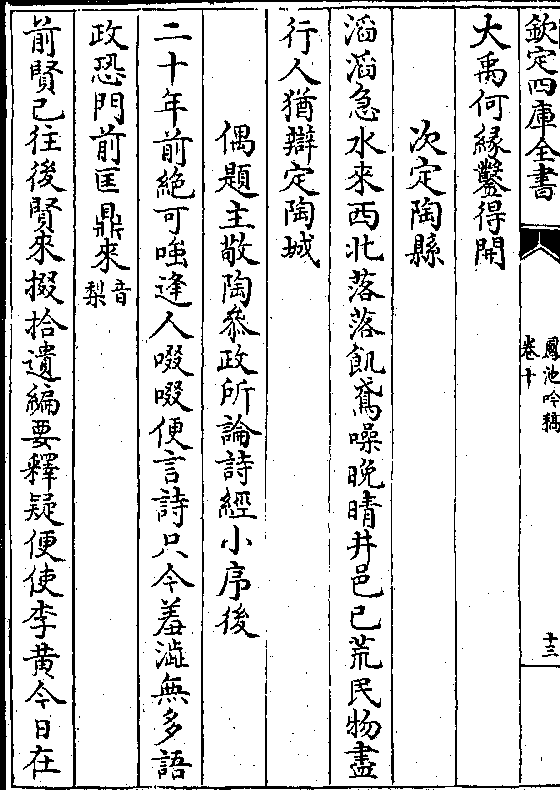 欽定四庫全書
鳳池吟稿
卷十
十三
大禹何縁鑿得開
次定陶縣
滔滔急水來西北落落飢鳶噪晚晴井邑已荒民物盡
行人猶辯定陶城
偶題主敬陶叅政所論詩經小序後
二十年前絶可嗤逢人啜啜便言詩只今羞澁無多語
政恐門前匡鼎來音梨
前賢已往後賢來掇拾遺編要釋疑便使李黄今日在